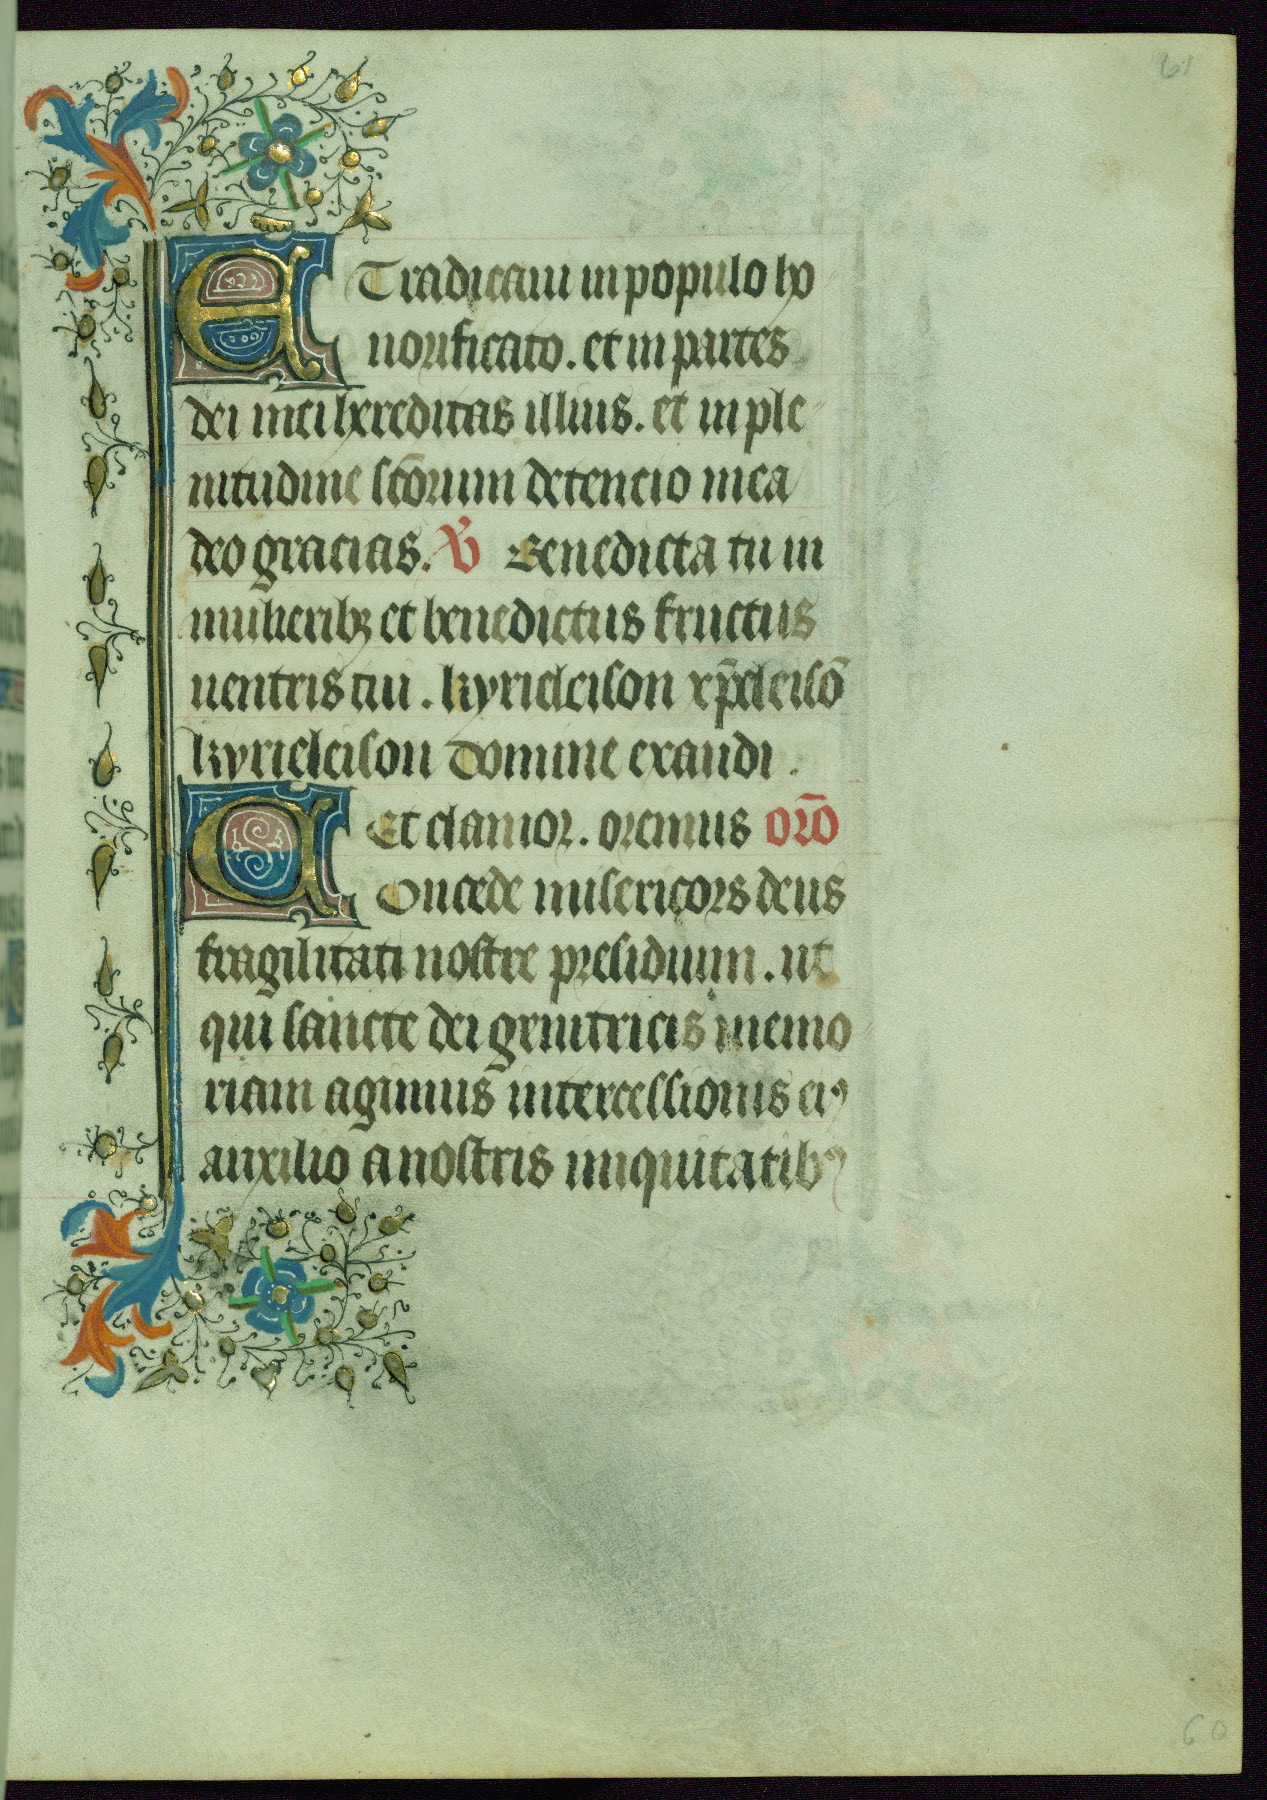 61
ETradicaui in populo ho
norificato. et in partes
dei mei hereditas illius. et in ple
nitudine scōrum detencio mea
deo gracias. V̄ Benedicta tu in
mulieribꝫ et benedictus fructus
uentris tui. kyrieleison xp̄eleisō
kyrieleison Domine exaudi.
Et clamor. oremus orō
COncede misericors deus
fragilitati nostre presidium. ut
qui sancte dei genitricis memo
riam agimus intercessionis eiꝰ
auxilio a nostris iniquitatibꝰ
60